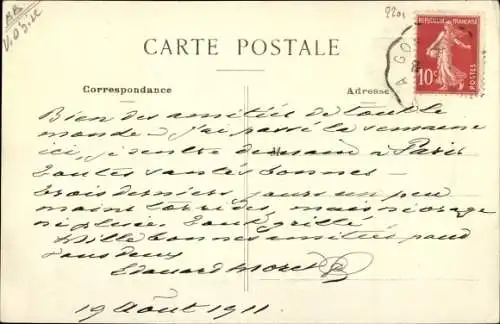 AR
2201
RÉPUBLIQUE FRANÇAISE
10c
POSTES
A GON
CARTE POSTALE
Correspondance
Adresse
Bien des amitiés de tout le
monde - J'ai passé la semaine
ici, je rentre demain à Paris
Toutes santés bonnes -
Trois derniers jours un peu
moins torrides, mais ni orage
ni pluie. Tout grillé
Mille bonnes amitiés pour
vous deux
Edouard Morel
19 Août 1911